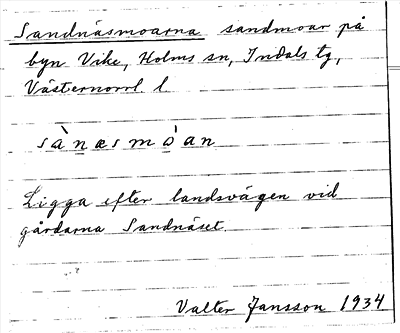 Sandnäsmoarna sandmoar på
byn Vike, Holms sn, Indals tg,
Västernorrl. l.
sànæsmòan
Ligga efter landsvägen vid
gårdarna Sandnäset.
Valter Jansson 1934